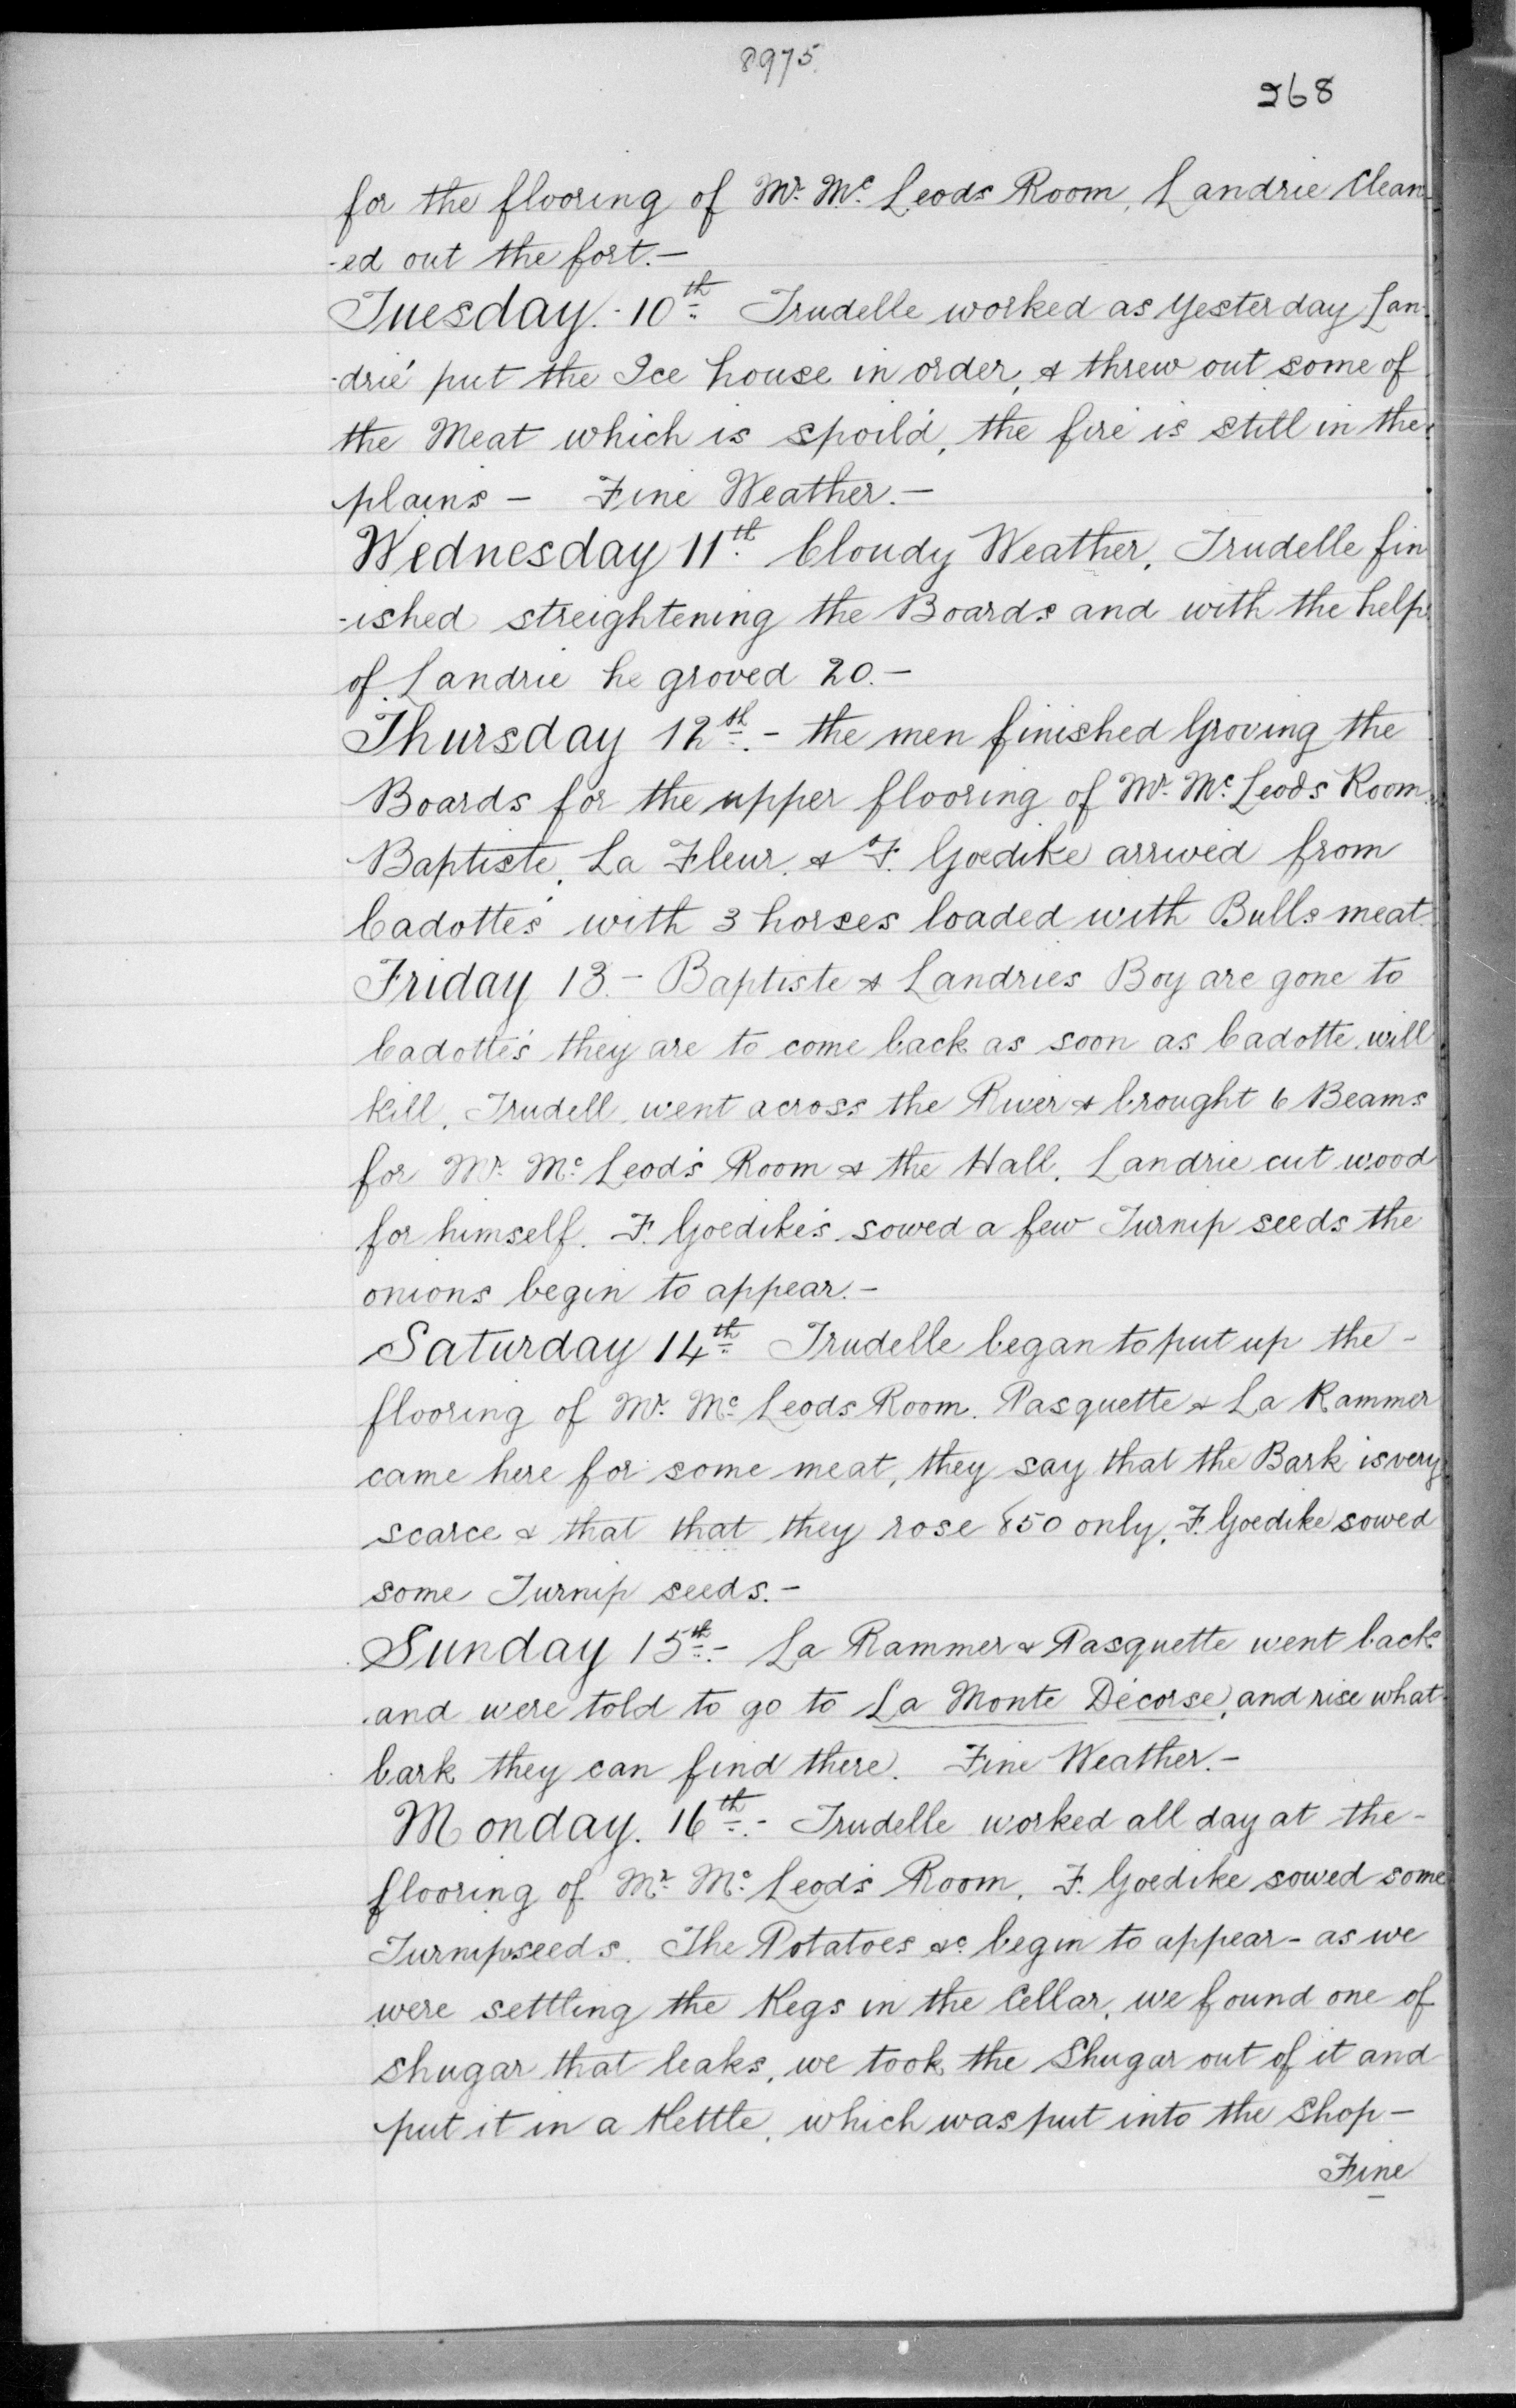 8975
268
for the flooring of Mr. Mc. Leods Room, Landrie Clean
-ed out the fort.—
Tuesday.- 10th Trudelle worked as yesterday Lan-
-drie put the Ice house in order, & threw out some of
the Meat which is spoil'd, the fire is still in the
plains — Fine Weather.—
Wednesday 11th Cloudy Weather, Trudelle fin
-ished streightening the Boards and with the help
of Landrie he groved 20.—
Thursday 12th.- the men finished Groving the
Boards for the upper flooring of Mr. Mc. Leods Room.
Baptiste, La Fleur, & F. Goedike arrived from
Cadotte's with 3 horses loaded with Bulls meat.
Friday 13.— Baptiste & Landries Boy are gone to
Cadotte's they are to come back as soon as Cadotte will
kill, Trudell, went across the River & brought 6 Beams
for Mr. Mc. Leod's Room & the Hall. Landrie cut wood
for himself. F. Goedike's sowed a few Turnip seeds the
onions begin to appear.—
Saturday 14th Trudelle began to put up the -
flooring of Mr. Mc. Leods Room. Pasquette & La Rammer
came here for some meat, they say that the Bark is very
scarce & that that they rose 850 only, F. Goedike sowed
some Turnip seeds.—
Sunday 15th.- La Rammer & Pasquette went back
and were told to go to La Monte Décorse, and rise what
bark they can find there. Fine Weather.—
Monday. 16th.- Trudelle worked all day at the -
flooring of Mr. Mc. Leod's Room, F. Goedike sowed some
Turnipseeds. The Potatoes &c. begin to appear - as we
were settling the Kegs in the Cellar, we found one of
shugar that leaks, we took the Shugar out of it and
put it in a Kettle, which was put into the Shop —
Fine